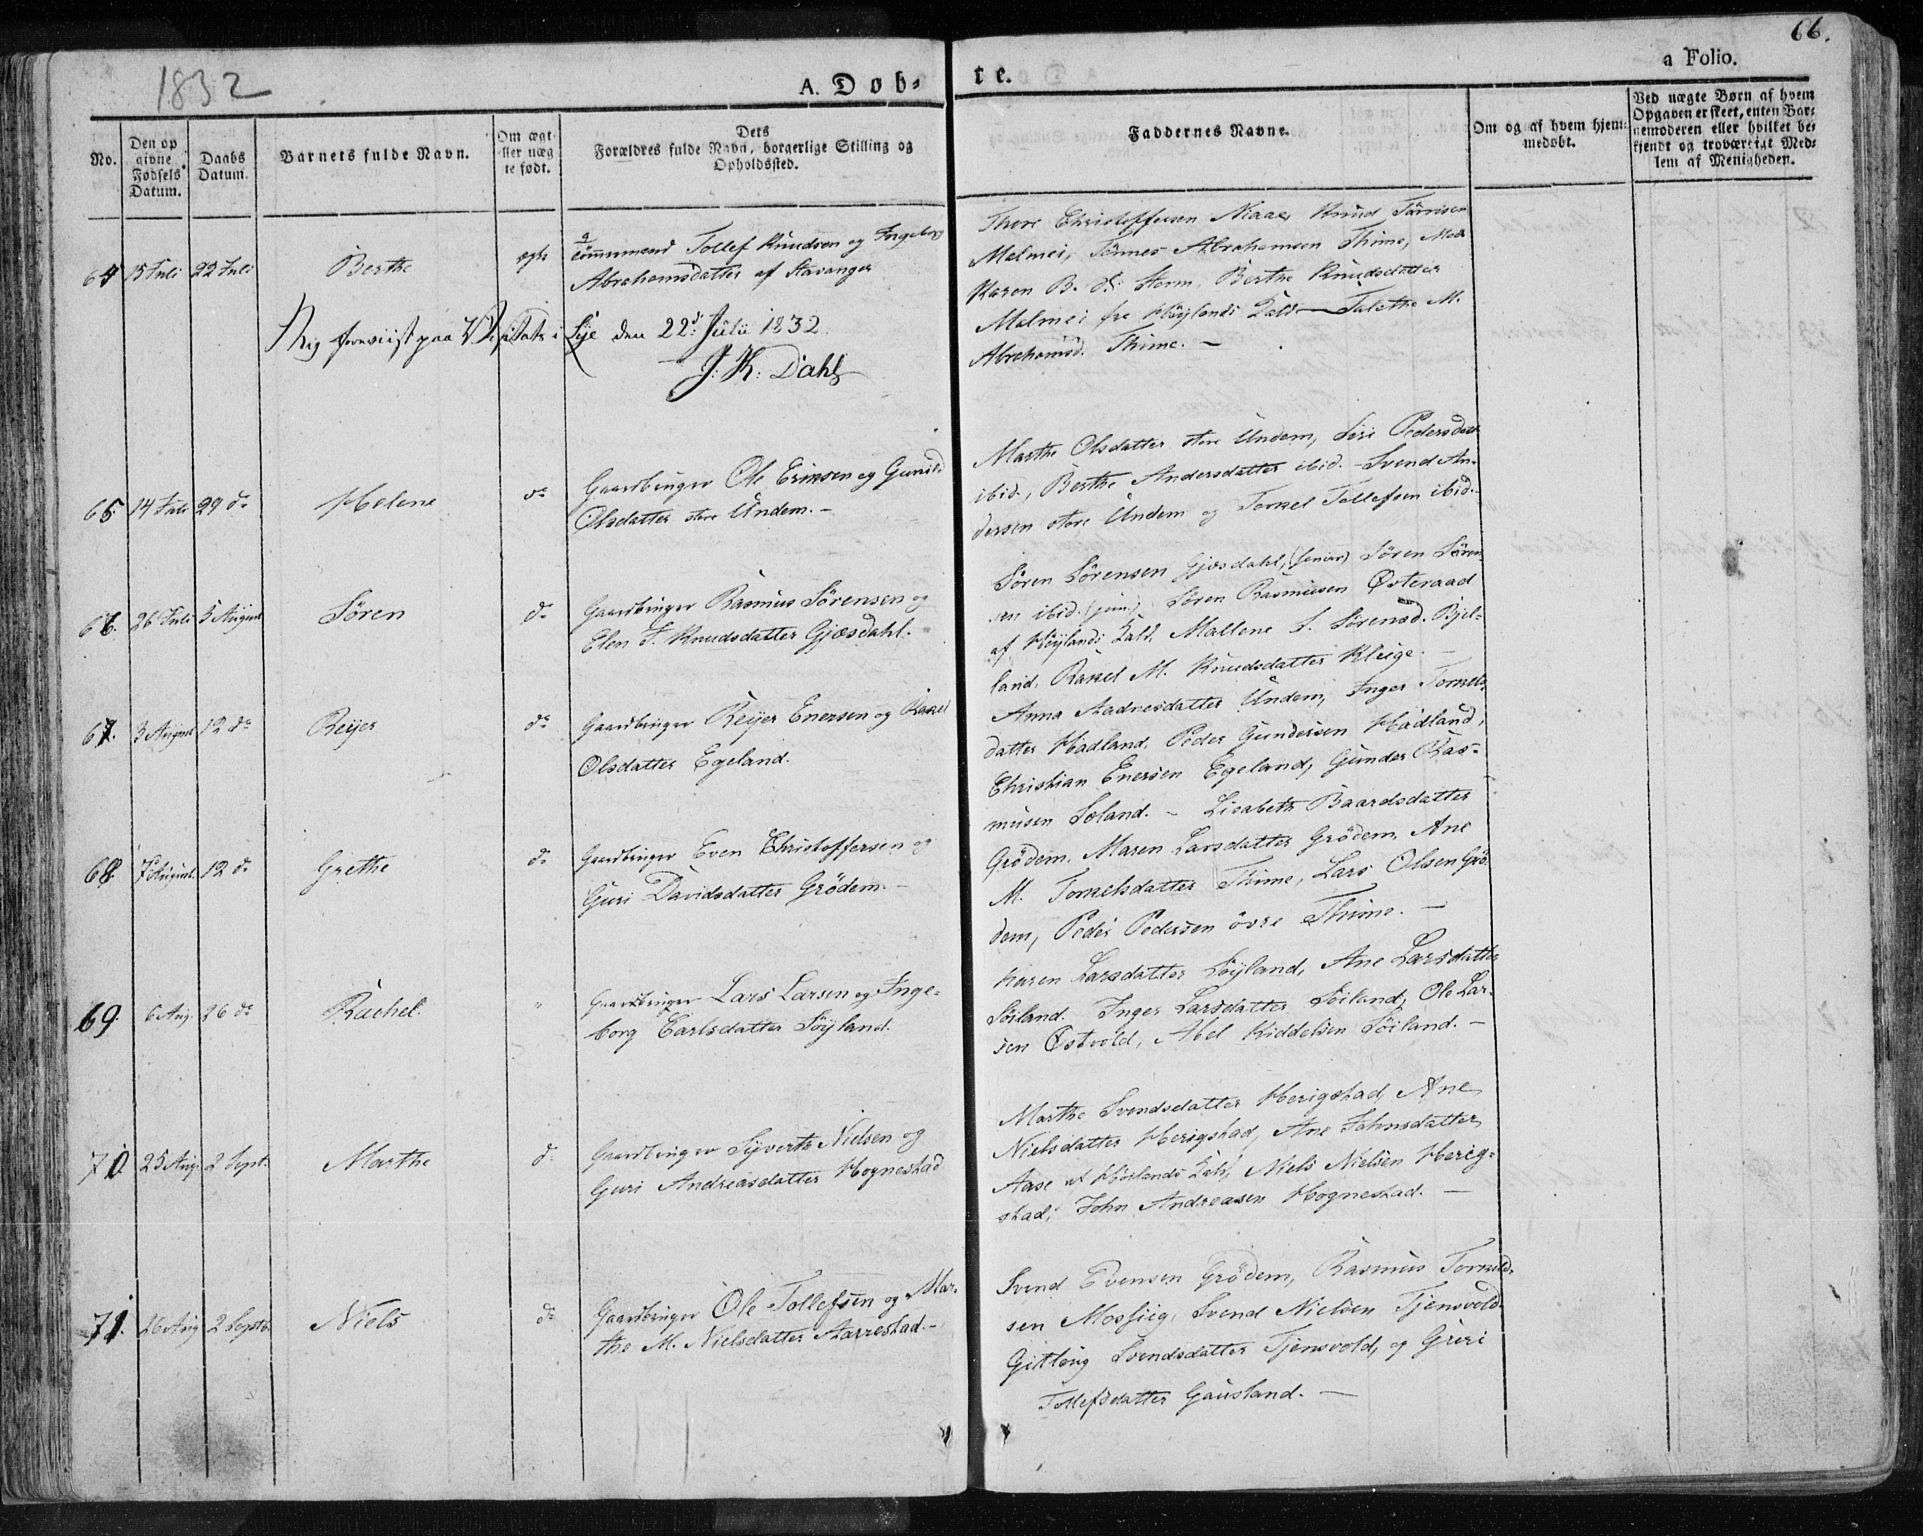 1832
66.
A. Døb-
te.
a Folio.
No.
Den op
givne
Fødsels
Datum.
Daabs
Datum.
Barnets fulde Navn.
Om ægt-
eller uæg
te født.
Dets
Forældres fulde Navn, borgerlige Stilling og
Opholdssted.
Faddernes Navne.
Om og af hvem hjem-
medøbt.
Ved uægte Børn af hvem
Opgaven er skeet, enten Bar-
nemoderen eller hvilket be-
kjendt og troværdigt Med-
lem af Menigheden.
64 15 Juli 22 Juli Berthe ægte
Tollef Knudsen og Ingeborg
Abrahamsdatter af Stavanger
Thore Christoffersen Njaae, Knud Tönnesen
Malmei, Tönnes Abrahamsen Thime, Mad
Karen B. Storm, Berthe Knudsdatter
Malmei fra Höylands Kald – Talethe M.
Abrahamsd. Thime. –
Mig foreviist paa Visitats i Lye den 22d Julii 1832
J. K. Dahl
65 14 Juli 29 do Helene do
Gaardbruger Ole Ericksen og Gunild
Olsdatter store Undem. –
Marthe Olsdatter store Undem, Siri Pedersdatt
ibid., Berthe Andersdatter ibid. – Svend An-
dersen store Undem og Torkel Tollefsen ibid.
66. 26 Juli 5 August Sören do
Gaardbruger Rasmus Sörensen og
Elen S. Knudsdatter Gjæsdahl.
Sören Sörensen Gjæsdahl, (senior) Sören Sören-
sen ibid. (jun.) Sören Rasmusen Østeraad
af Höylands Kald, Mallene S. Sörensd. Bjel-
land, Rakel M. Knudsdatter Kleige. –
67. 3 August 12 do Reijer do
Gaardbruger Reijer Enersen og Rakel
Olsdatter Egeland.
Anna Aadnesdatter Undem, Inger Torkels-
datter Hadland, Peder Gundersen Hadland,
Christian Enersen Egeland, Gunder Ras-
musen Soland. –
68. 7 August 12 do Grethe do
Gaardbruger Even Christoffersen og
Guri Davidsdatter Grödem. –
Lisabeth Baardsdatter
Grödem, Maren Larsdatter Grödem, Ane
M. Torkelsdatter Thime, Lars Olsen Grö-
dem, Peder Pedersen övre Thime. –
69. 6 Aug. 26 do Rachel. "
Gaardbruger Lars Larsen og Inge-
borg Carlsdatter Söyland.
Karen Larsdatter Söyland, Ane Larsdatter
Söiland. Inger Larsdatter Söiland, Ole Lar-
sen Østvold, Abel Kiddelsen Söiland. –
70 25 Aug. 2 Sept. Marthe do
Gaardbruger Syverth Nielsen og
Guri Andreasdatter Hognestad
Marthe Svendsdatter Herigstad, Ane
Nielsdatter Herigstad, Ane Johnsdatter
Aase af Höilands Kald, Niels Nielsen Herig-
stad, John Andreasen Hognestad. –
71. 26 Aug 2 Septb. Niels do
Gaardbruger Ole Tollefsen og Mar-
the M. Nielsdatter Aarrestad. –
Svend Evensen Grödem, Rasmus Torkild-
sen Mossige, Svend Nielsen Tjensvold
Gitlöug Svendsdatter Tjensvold, og Guri
Tollefsdatter Gausland. –